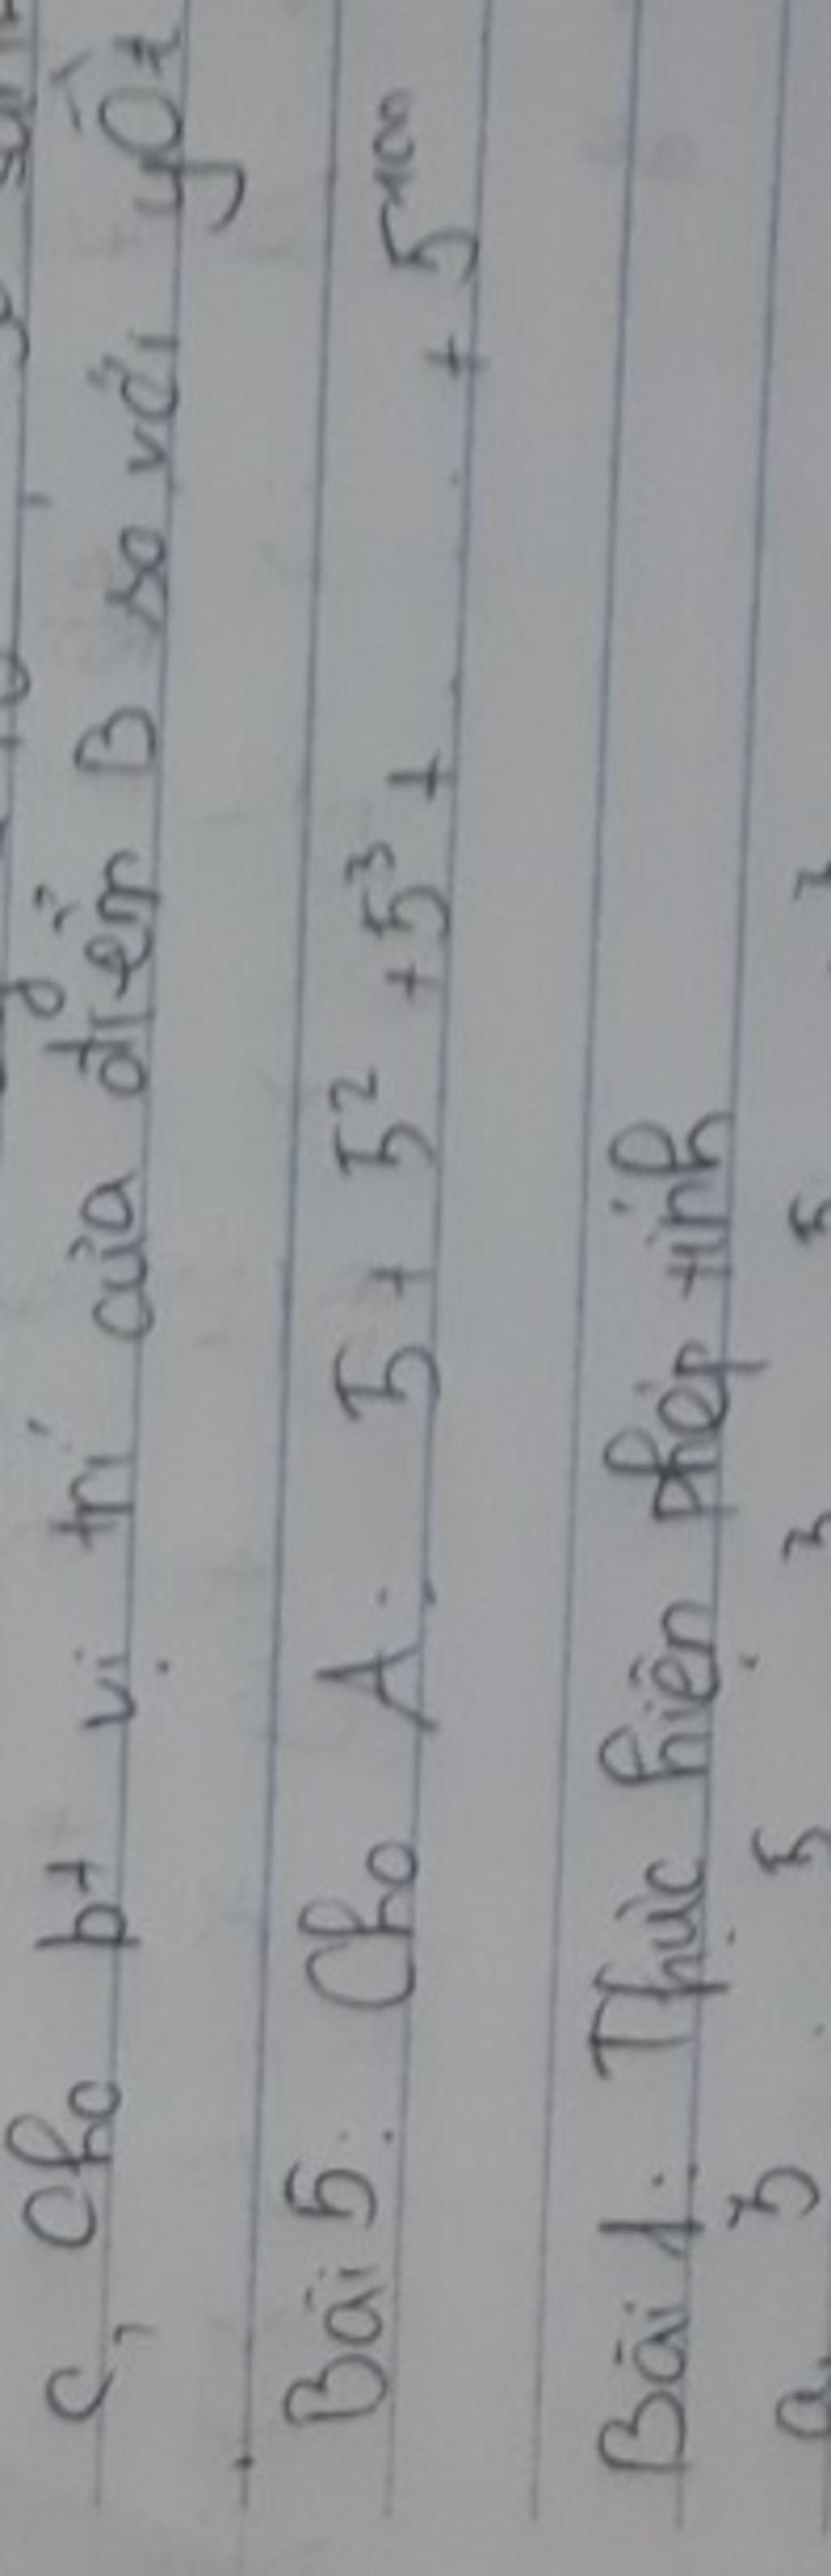 c, Cho bt vị trí của điểm B so với yOz
Bài 5. Cho A: 5 + 5² + 5³ + . . . + 5¹⁰⁰
Bài 1. Thực hiện phép tính